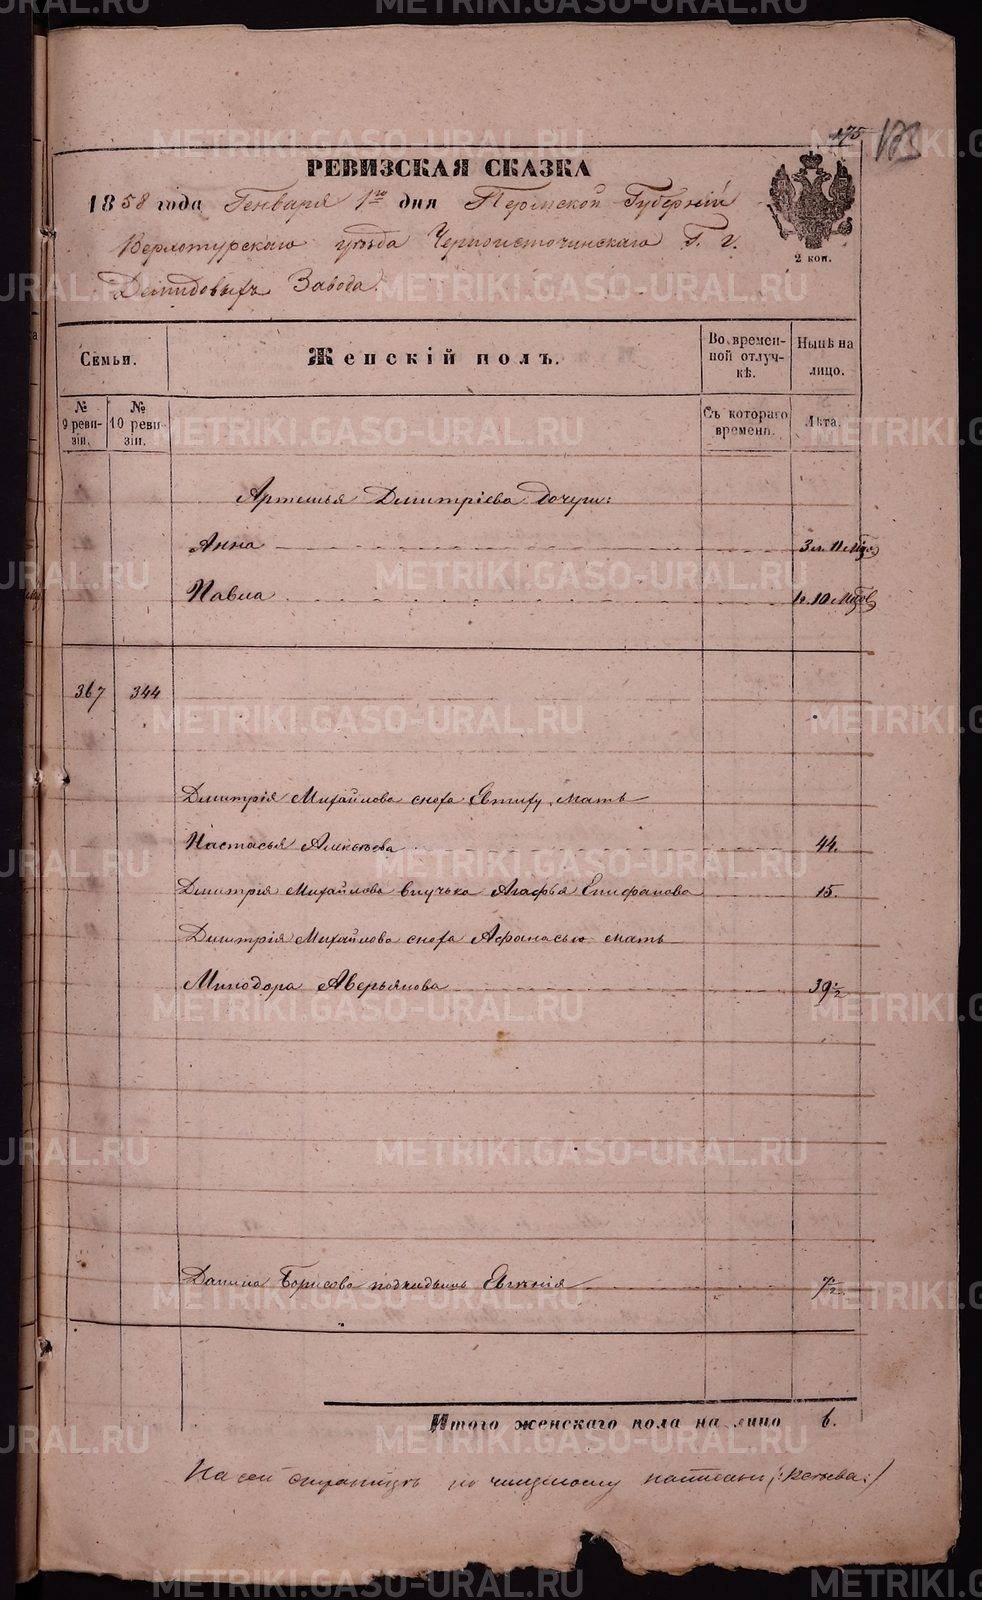 175 173
РЕВИЗСКАЯ СКАЗКА
1858 года Генваря 1го дня Пермской Губерніи
Верхотурскаго уѣзда Черноисточинскаго Г. г.
Демидовыхъ Завода
2 коп.
Семьи.
Женскій полъ.
Во времен-
ной отлуч-
кѣ.
Нынѣ на
лицо.
№
9 реви-
зіи.
№
10 реви-
зіи.
Съ котораго
времени.
Лѣта.
Артемья Дмитріева дочери:
Анна 3 л. 11 мѣс.
Павла 1 г. 10 мѣсов
367 344
Дмитрія Михайлова сноха Евтиху мать
Настасья Алексѣева 44.
Дмитрия Михайлова внучька Агафья Епифанова 15.
Дмитрія Михайлова сноха Афонасью мать
Минодора Аверьянова 39 1/2
Данила Борисова подкидышъ Евгенія 7/2.
Итого женскаго пола на лицо 6.
На сей страницѣ по написано
METRIKI.GASO-URAL.RU